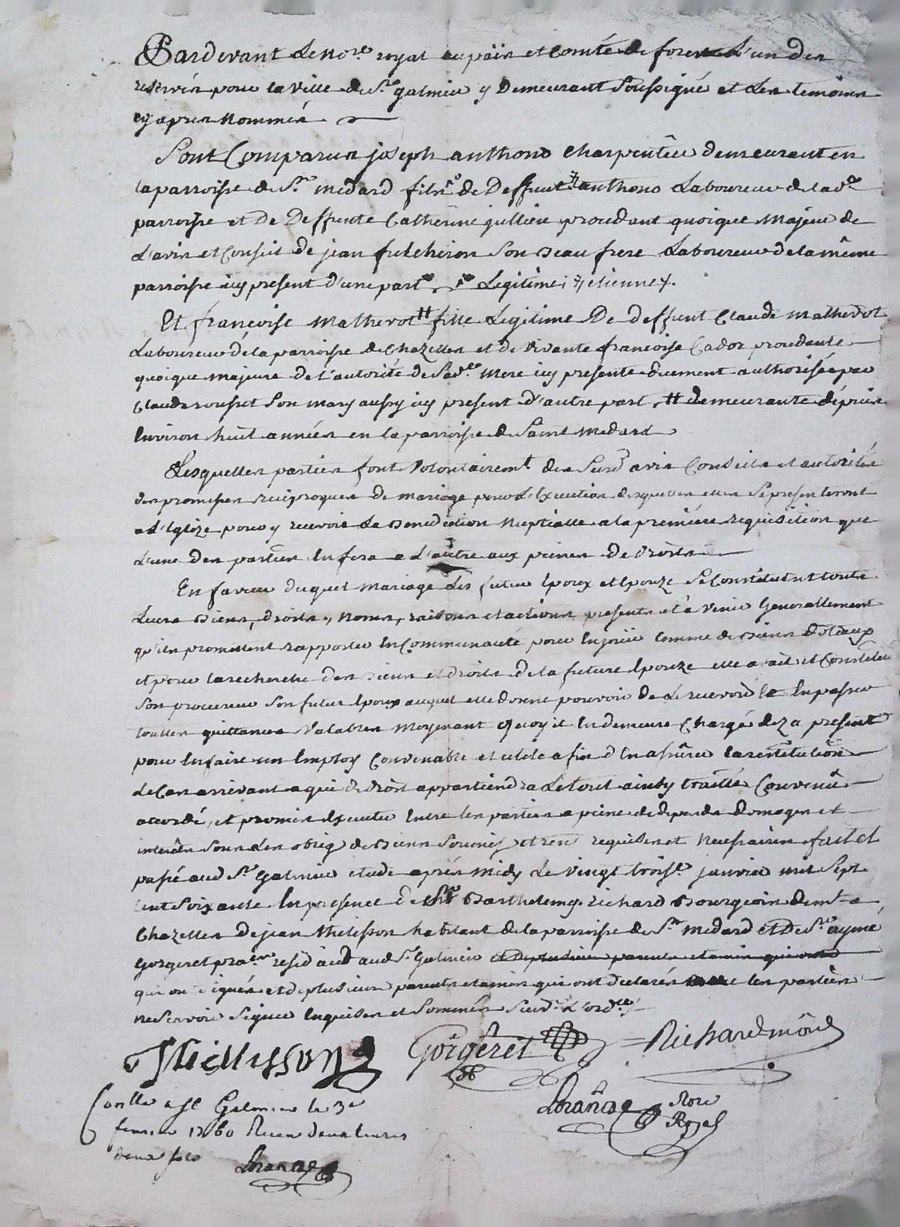 Pardevant Le no.re royal au païs et Comté de forest L'un des
reservés pour la ville de S.t galmier y Demeurant Soussigné et Les temoins
cy après Nommés
Sont Comparus joseph anthono charpentier demeurant en
la parroisse de S.t medard fils de Deffunt anthono Laboureur de lad.e
parroisse et De Deffunte Catherine jullien procedant quoique Majeur de
L'avis et Conseil de jean fulcheron Son Beau frere Laboureur de la même
parroisse icy present d'une part Legitime etienne
Et françoise Mathevot fille Legitime De deffunt Claude Mathevot
Laboureur de la parroisse de Chazelles et de vivante françoise Cador procedante
quoique majeure de l'autorité de Sad.e Mere icy presente duement authorisée par
Claude rousset Son mary aussy icy present d'autre part, demeurante depuis
Environ huit années en la parroisse de Saint Medard
Lesquelles parties font volontairem.t des Susd. avis Conseils et autorités
des promesses reciproques de mariage pour L'Execution desquelles elles Se presenteront
a L'Eglize pour y recevoir La Benediction Nuptialle a la première requisition que
L'une des parties En fera a L'autre aux peines de Droits
En faveur duquel mariage Les futurs Epoux et Epouze Se Constituent touts
Leurs Biens, droits, Noms, raisons et actions presents et à venir Generallement
qu'ils promettent rapporter En Communauté pour En jouir comme de Biens Dotaux
et pour la recherche des Biens et droits de la future Epouze elle a fait et Constitué
Son procureur Son futur Epoux auquel elle donne pouvoir de Les recevoir et En passer
toutes quittances valables Moyenant Quoy il En demeure Chargé deza present
pour En faire un Employ Convenable et utile afin d'En assurer la restitution
Le Cas arrivant a qui de Droit appartiendra Le tout ainsy traitté Convenu
accordé, et promis Executer Entre les parties a peine de depends domages et
interêts Sous Les oblig. de Biens Soumis. et ren. requises et Necessaires fait et
passé aud. S.t Galmier etude après Midy Le vingt trois.e janvier mil Sept
Cent Soixante En presence de S.r Barthelemy Richard Bourgeois dem.t a
Chazelles de jean thelisson habitant de la parroisse de S.t medard et de S.r aymé
Gorgeret resid. aud. S.t Galmier et de plusieurs parents et amis qui ont
qui on Signés et de plusieurs parents et amis qui ont declarés les parties
ne Scavoir Signer Enquises et Sommés
Thelisson Gorgeret Richard
Lorañge Nore
Royal
Conllé a St Galmier le 3e
fevrier 1760 Receu
Lorange